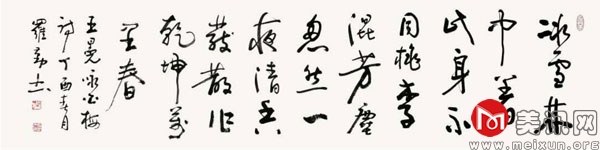 冰雪林
中著
此身不
同桃李
混芳塵
忽然一
夜清香
發散作
乾坤萬
里春
王冕咏白梅
詩丁酉春月
羅勤
美讯网
www.meixun.org